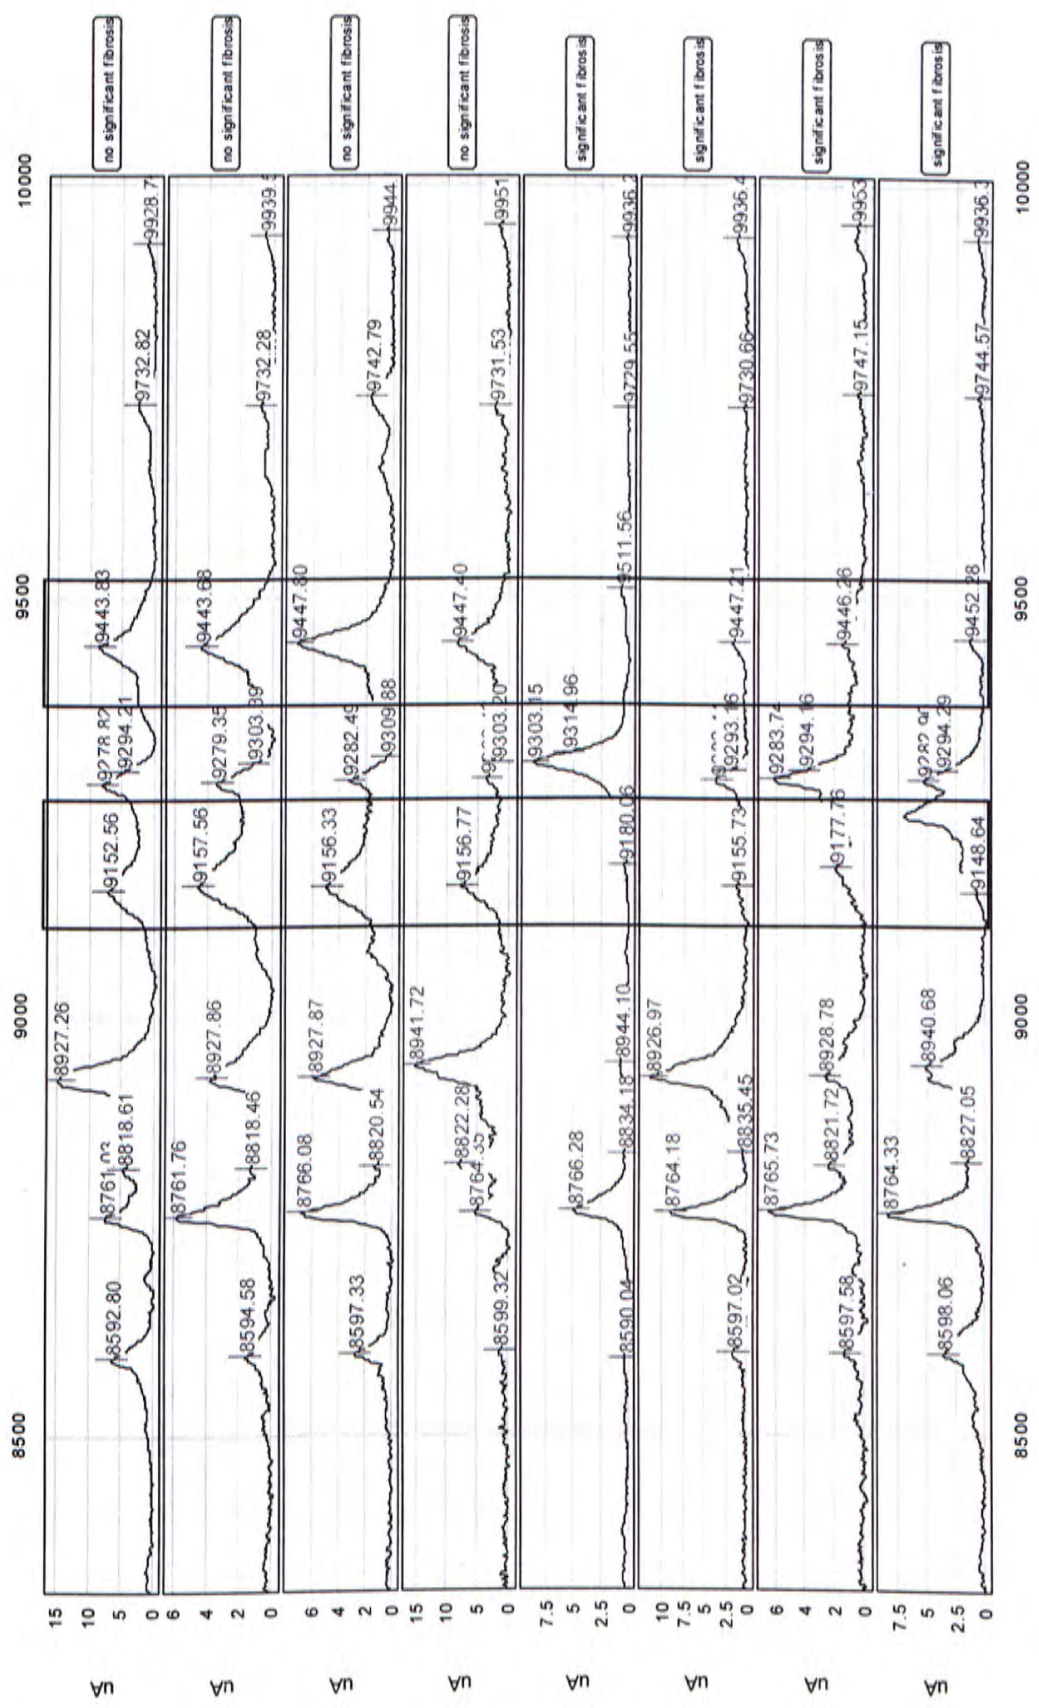 8500 9000 9500 10000
15
10
5
0
µA
8592.80 8761.03 8818.61 8927.26 9152.56 9278.82 9294.21 9443.83 9732.82 9928.7
no significant fibrosis
6
4
2
0
µA
8594.58 8761.76 8818.46 8927.86 9157.56 9279.35 9303.39 9443.68 9732.28 9939.5
no significant fibrosis
6
4
2
0
µA
8597.33 8766.08 8820.54 8927.87 9156.33 9282.49 9309.88 9447.80 9742.79 9944
no significant fibrosis
15
10
5
0
µA
8599.32 8764.35 8822.28 8941.72 9156.77 9303.20 9447.40 9731.53 9951
no significant fibrosis
7.5
5
2.5
0
µA
8590.04 8766.28 8834.18 8944.10 9180.06 9303.15 9314.96 9511.56 9729.55 9936.2
significant fibrosis
10
7.5
5
2.5
0
µA
8597.02 8764.18 8835.45 8926.97 9155.73 9293.16 9447.21 9730.66 9936.4
significant fibrosis
6
4
2
0
µA
8597.58 8765.73 8821.72 8928.78 9177.76 9283.74 9294.16 9446.26 9747.15 9953
significant fibrosis
7.5
5
2.5
0
µA
8598.06 8764.33 8827.05 8940.68 9148.64 9294.29 9452.28 9744.57 9936.3
significant fibrosis
8500 9000 9500 10000